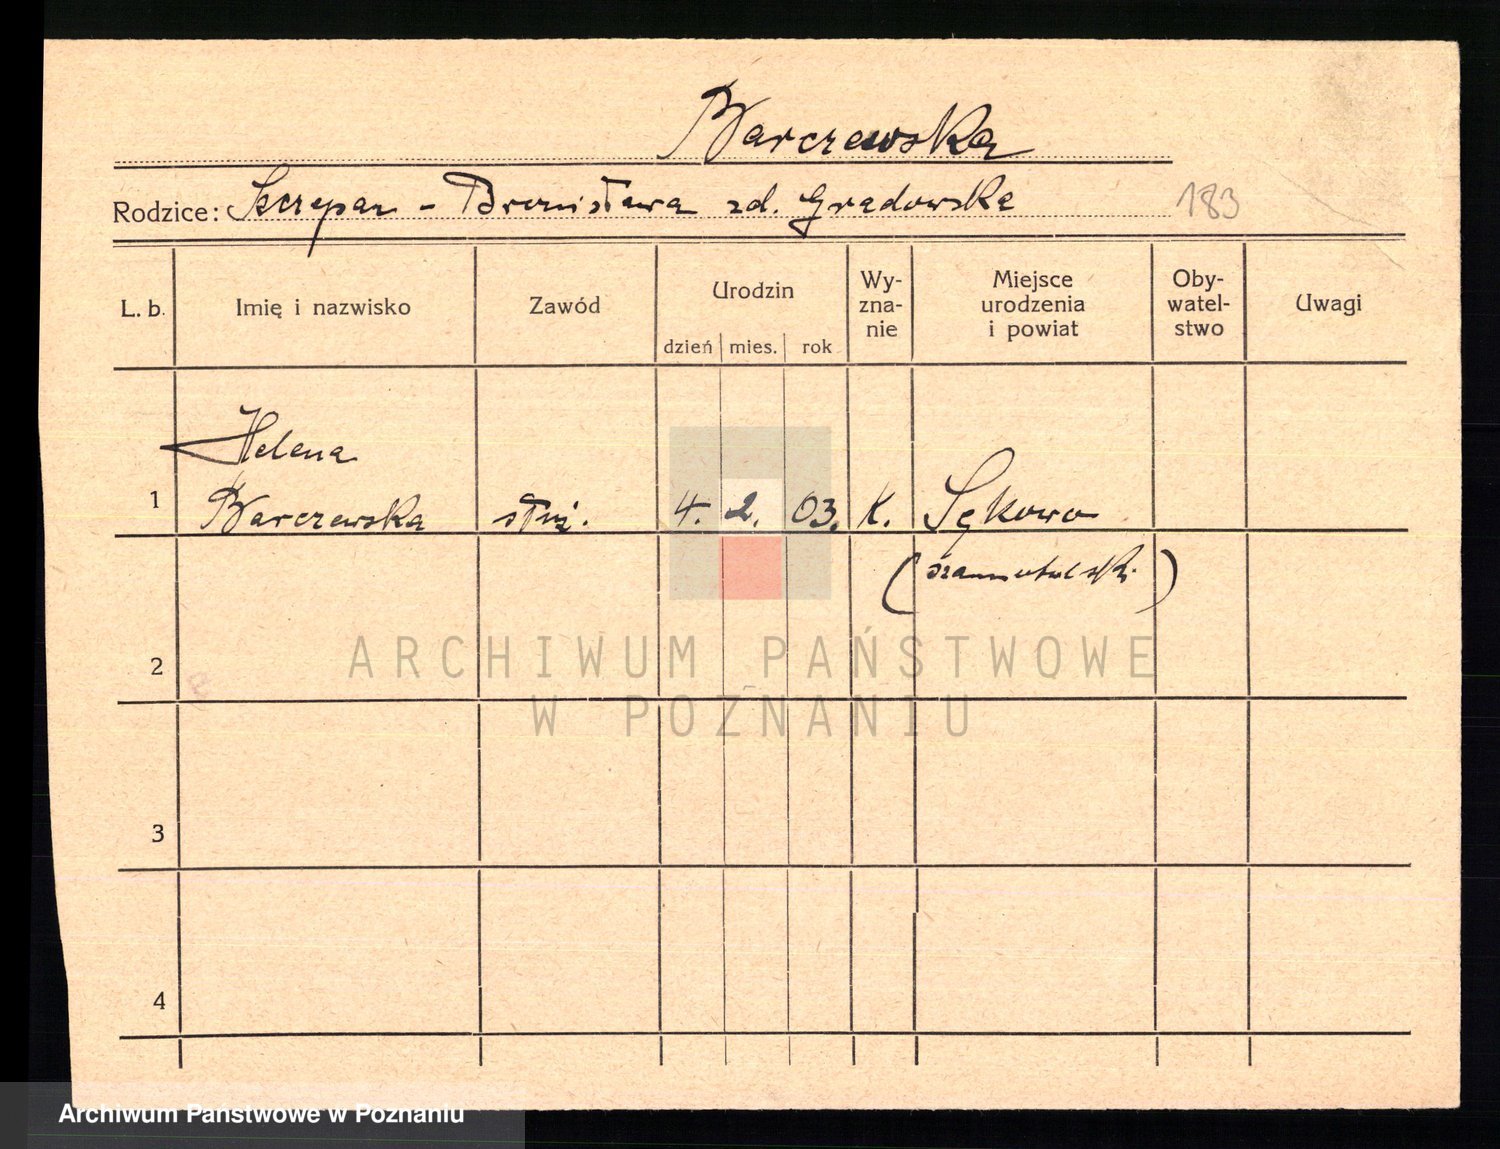 Barczewska
Rodzice: Szczepan - Bronisława zd. Gradowska 183
L. b. Imię i nazwisko Zawód Urodzin dzień mies. rok Wy-zna-nie Miejsce urodzenia i powiat Oby-watel-stwo Uwagi
Helena
1 Barczewska służ. 4. 2. 03. K. Sękowo
(szamotulski)
2
3
4
ARCHIWUM PAŃSTWOWE
W POZNANIU
Archiwum Państwowe w Poznaniu